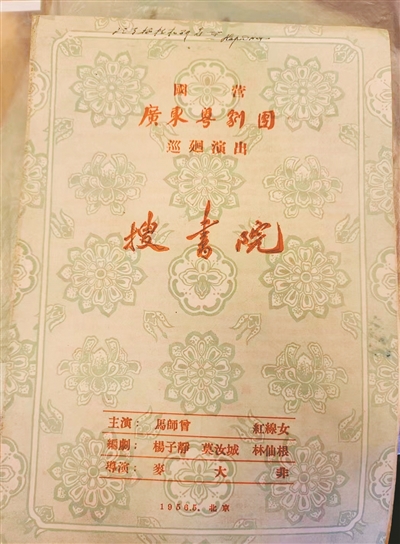 國營
廣東粵劇團
巡廻演出
搜書院
主演： 馬師曾 紅線女
編劇： 楊子靜 莫汝城 林仙根
導演： 麥大非
1956.5. 北京